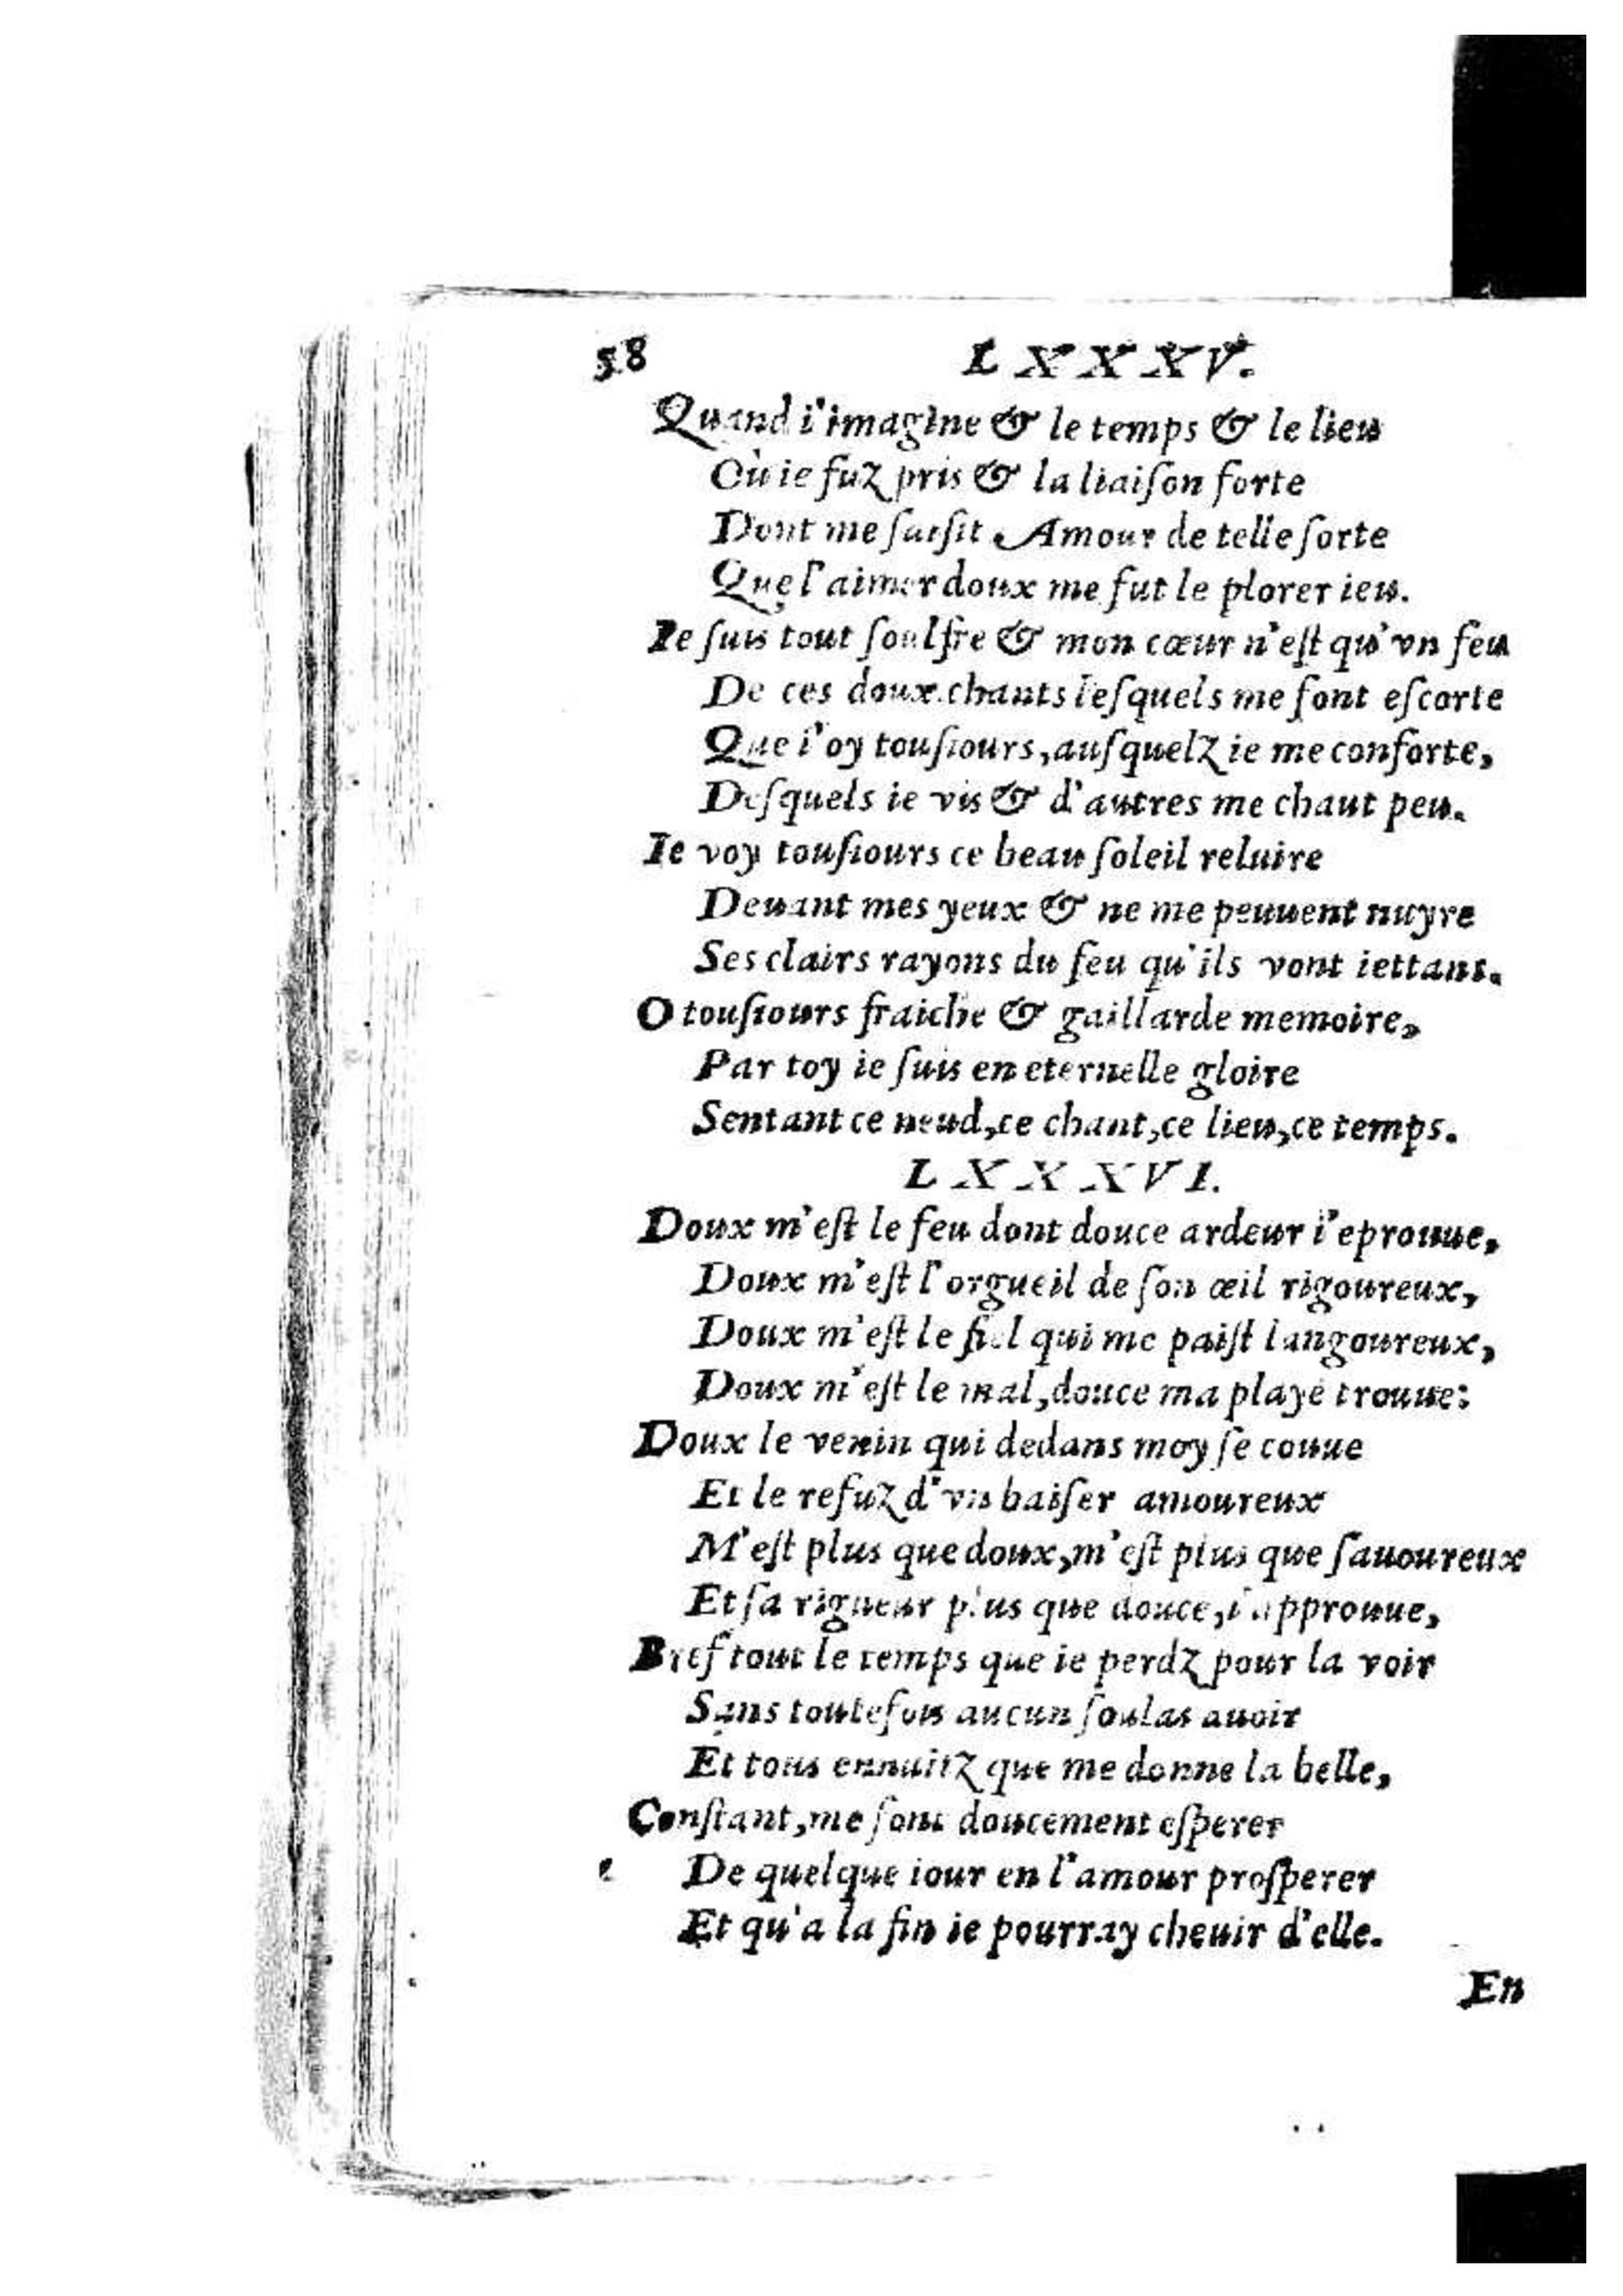 58 LXXXV.
Quand i'imagine & le temps & le lieu
Où ie fuz pris & la liaiſon forte
Dont me ſaiſit Amour de telle ſorte
Que l'aimer doux me fut le plorer ieu.
Ie ſuis tout ſoulfre & mon cœur n'eſt qu'vn feu
De ces doux chants leſquels me font eſcorte
Que i'oy touſiours, auſquelz ie me conforte,
Deſquels ie vis & d'autres me chaut peu.
Ie voy touſiours ce beau ſoleil reluire
Deuant mes yeux & ne me peuuent nuyre
Ses clairs rayons du feu qu'ils vont iettans.
O touſiours fraiche & gaillarde memoire,
Par toy ie ſuis en eternelle gloire
Sentant ce neud, ce chant, ce lieu, ce temps.
LXXXVI.
Doux m'eſt le feu dont douce ardeur i'eprouue,
Doux m'eſt l'orgueil de ſon œil rigoureux,
Doux m'eſt le fiel qui me paiſt langoureux,
Doux m'eſt le mal, douce ma playe trouue:
Doux le venin qui dedans moy ſe couue
Et le refuz d'vn baiſer amoureux
M'eſt plus que doux, m'eſt plus que ſauoureux
Et ſa rigueur plus que douce, i'approuue,
Bref tout le temps que ie perdz pour la voir
Sans toutefois aucun ſoulas auoir
Et tous ennuitz que me donne la belle,
Conſtant, me font doucement eſperer
De quelque iour en l'amour proſperer
Et qu'a la fin ie pourray cheuir d'elle.
En